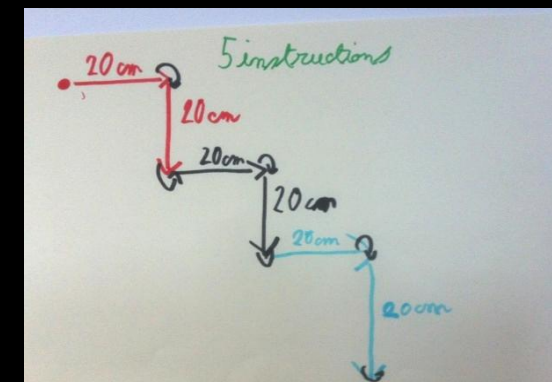 5 instructions
20 cm
20 cm
20 cm
20 cm
20 cm
20 cm